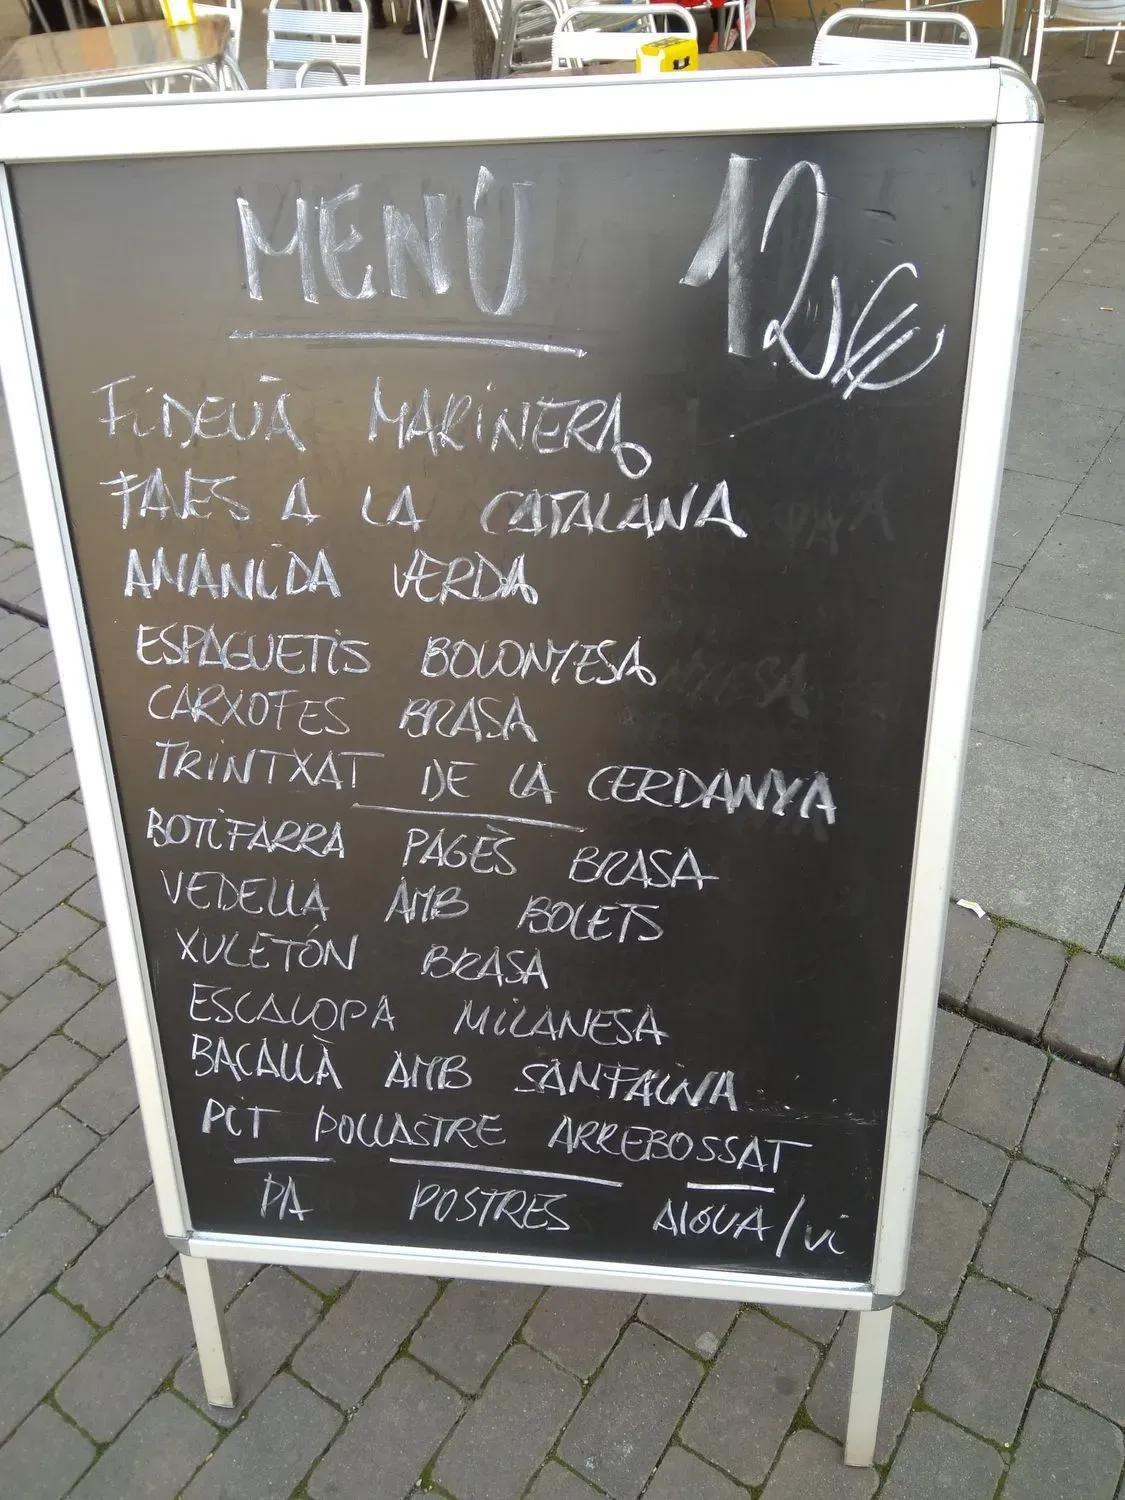 MENÚ 12€
FIDEUÀ MARINERA
FAVES A LA CATALANA
AMANIDA VERDA
ESPAGUETIS BOLONYESA
CARXOFES BRASA
TRINTXAT DE LA CERDANYA
BOTIFARRA PAGÈS BRASA
VEDELLA AMB BOLETS
XULETÓN BRASA
ESCALOPA MILANESA
BACALLÀ AMB SAMFAINA
PIT POLLASTRE ARREBOSSAT
PA POSTRES AIGUA/Vi